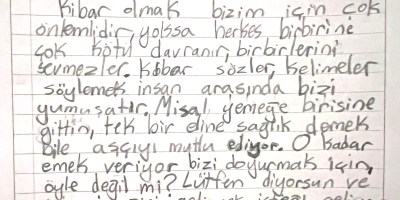 Kibar olmak bizim için çok
önemlidir, yoksa herkes birbirine
çok kötü davranır, birbirlerini
sevmezler. Kibar sözler, kelimeler
söylemek insan arasında bizi
yumuşatır. Misal yemeğe birisine
gittin, tek bir eline sağlık demek
bile aşçıyı mutlu ediyor. O kadar
emek veriyor bizi doyurmak için,
öyle değil mi? Lütfen diyorsun ve